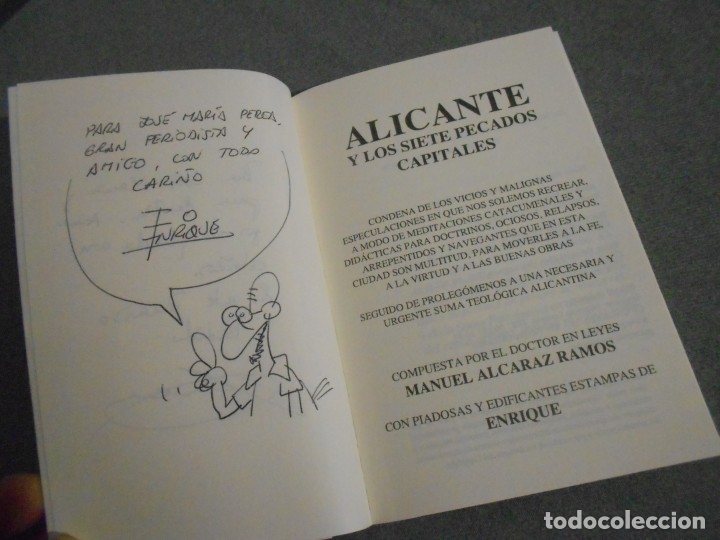 PARA JOSÉ MARÍA PEREA,
GRAN PERIODISTA Y
AMIGO, CON TODO
CARIÑO
ENRIQUE
ALICANTE
Y LOS SIETE PECADOS
CAPITALES
CONDENA DE LOS VICIOS Y MALIGNAS
ESPECULACIONES EN QUE NOS SOLEMOS RECREAR,
A MODO DE MEDITACIONES CATACUMENALES Y
DIDÁCTICAS PARA DOCTRINOS, OCIOSOS, RELAPSOS,
ARREPENTIDOS Y NAVEGANTES QUE EN ESTA
CIUDAD SON MULTITUD, PARA MOVERLES A LA FE,
A LA VIRTUD Y A LAS BUENAS OBRAS
SEGUIDO DE PROLEGÓMENOS A UNA NECESARIA Y
URGENTE SUMA TEOLÓGICA ALICANTINA
COMPUESTA POR EL DOCTOR EN LEYES
MANUEL ALCARAZ RAMOS
CON PIADOSAS Y EDIFICANTES ESTAMPAS DE
ENRIQUE
todocoleccion.net